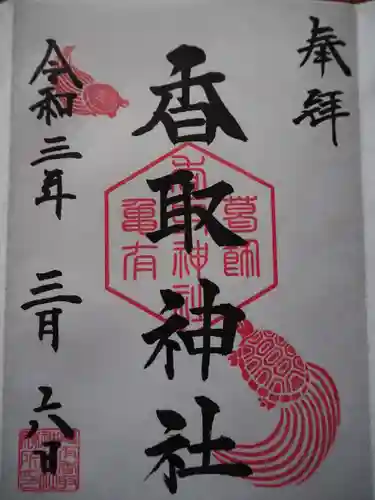 奉拝
香取神社
葛飾
香取神社
亀有
令和三年 三月 二八日